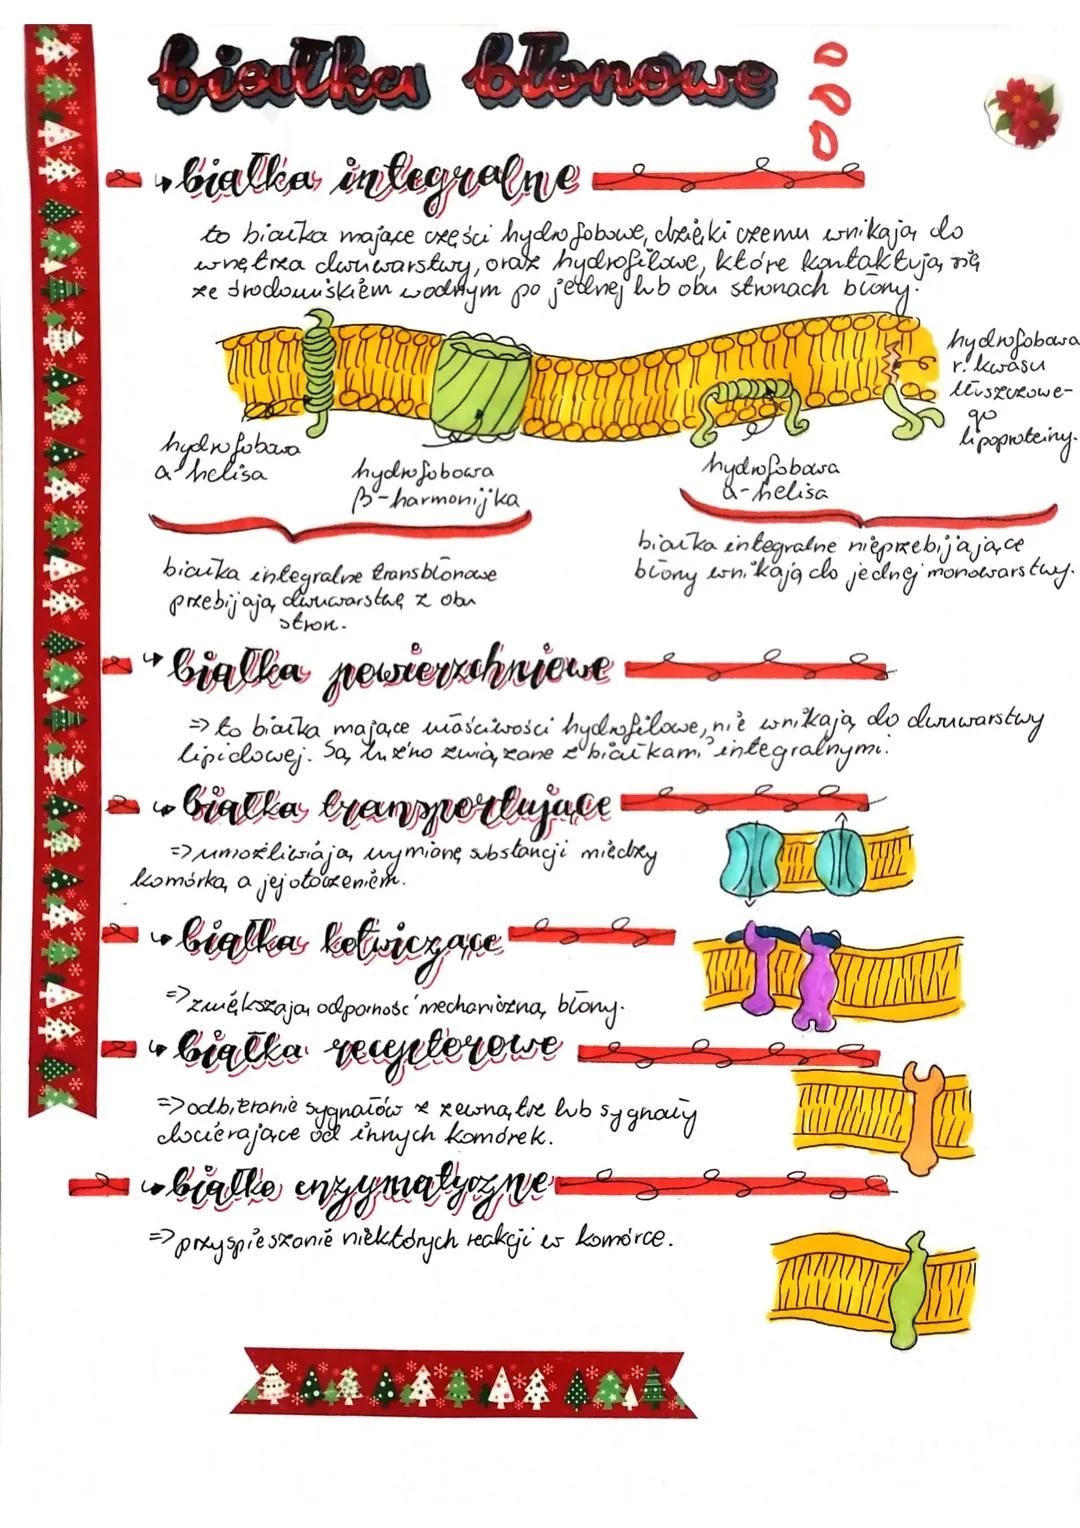 białka błonowe
białka integralne
to białka mające części hydrofobowe, dzięki czemu wnikają do
wnętrza dwuwarstwy, oraz hydrofilowe, które kontaktują się
ze środowiskiem wodnym po jednej lub obu stronach błony.
hydrofobowa
α helisa
hydrofobowa
β-harmonijka
hydrofobowa
α-helisa
hydrofobowa
r. kwasu
tłuszczowe-
go
lipoproteiny.
białka integralne transbłonowe
przebijają dwuwarstwę z obu
stron.
białka integralne nieprzebijające
błony wnikają do jednej monowarstwy.
białka powierzchniowe
=> to białka mające właściwości hydrofilowe, nie wnikają do dwuwarstwy
lipidowej. Są luźno związane z białkami integralnymi.
białka transportujące
=> umożliwiają wymianę substancji między
komórką a jej otoczeniem.
białka kotwiczące
=> zwiększają odporność mechaniczną błony.
białka receptorowe
=> odbieranie sygnałów z zewnątrz lub sygnały
docierające od innych komórek.
białko enzymatyczne
=> przyspieszanie niektórych reakcji w komórce.